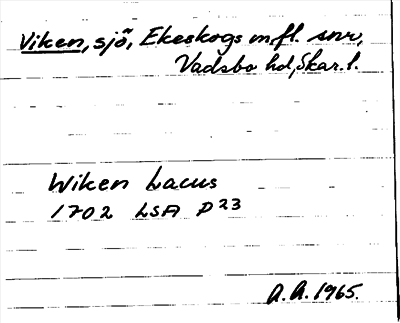 Viken, sjö, Ekeskogs m.fl. snr,
Vadsbo hd, Skar. l.
Wiken Lacus
1702 LSA P23
A.A. 1965.